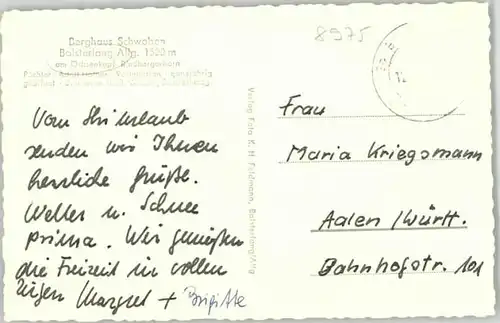 Berghaus Schwaben
Bolsterlang Allg. 1530 m
am Riedbergerhorn
Pächter ganzjährig
8975
Vom Skiurlaub
senden wir Ihnen
herzliche Grüße.
Wetter u. Schnee
prima. Wir genießen
die Freizeit in vollen
Zügen Margret + Brigitte
Verlag Foto K. H. Bolsterlang/Allg.
Frau
Maria Kriegsmann
Aalen /Württ.
Bahnhofstr. 101